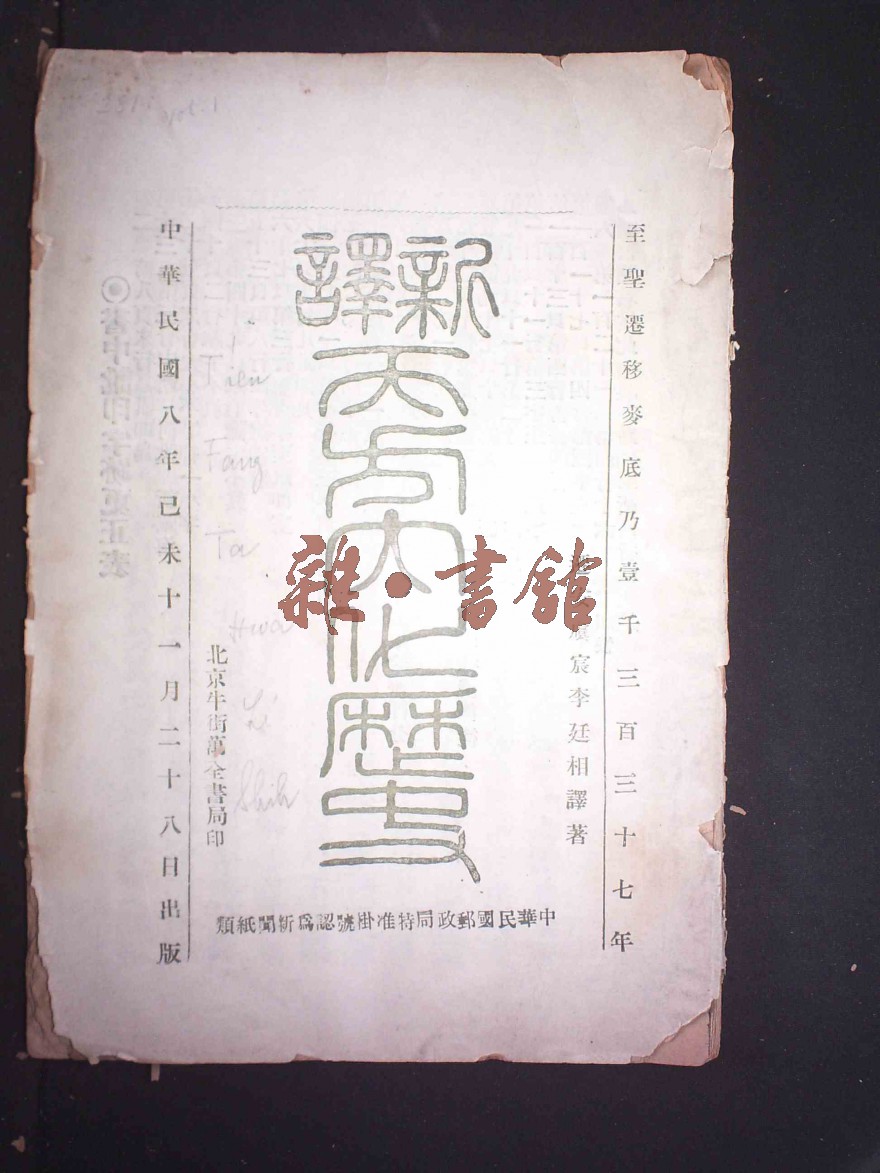 至聖遷移麥底乃壹千三百三十七年
宸李廷相譯著
新譯
天方大化歷史
北京牛街萬全書局印
中華民國八年己未十一月二十八日出版
中華民國郵政局特准掛號認爲新聞紙類
雜·書館
vol. 1
Tien
Fang
Ta
Hwa
Li
Shih